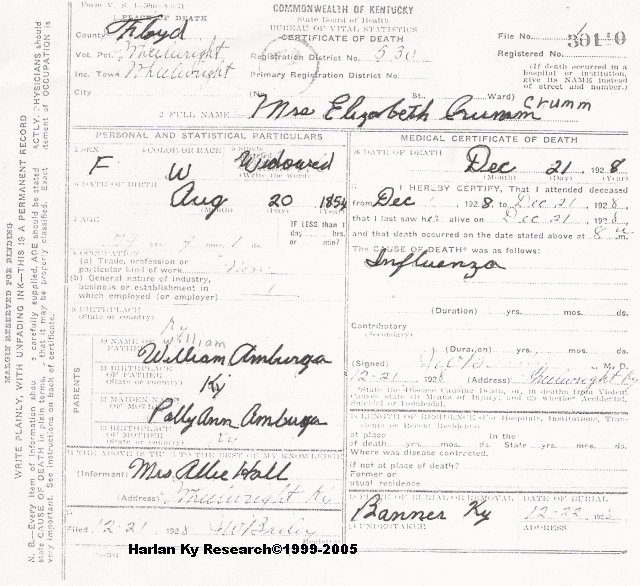 Form V. S.
1 PLACE OF DEATH
COMMONWEALTH OF KENTUCKY
State Board of Health
BUREAU OF VITAL STATISTICS
CERTIFICATE OF DEATH
County Floyd
File No.
Vot. Pct. Wheelwright
Registration District No. 530
Registered No.
Inc. Town Wheelwright
Primary Registration District No.
(If death occurred in a hospital or institution, give its NAME instead of street and number.)
City (No. St., Ward)
2 FULL NAME Mrs Elizabeth Crumm Crumm
PERSONAL AND STATISTICAL PARTICULARS
MEDICAL CERTIFICATE OF DEATH
SEX
COLOR OR RACE
F W Widowed
(Write the word)
DATE OF DEATH
Dec 21 1928
(Month) (Day) (Year)
DATE OF BIRTH
Aug 20 1854
(Month) (Day) (Year)
I HERBY CERTIFY, That I attended deceased
from Dec 1928, to Dec 21 1928,
that I last saw her alive on Dec 21, 1928,
and that death occurred on the date stated above at 8 m.
7 AGE
IF LESS than 1
day hrs.
or min?
yrs. mos. 1 ds.
The CAUSE OF DEATH* was as follows:
Influenza
OCCUPATION
(a) Trade, profession or
particular kind of work
(b) General nature of industry,
business or establishment in
which employed (or employer)
(Duration) yrs. mos. ds.
9 BIRTHPLACE
(State or country) Ky
Contributory
(Secondary)
(Duration) yrs. mos. ds.
PARENTS
10 NAME OF FATHER William
William Amburga
(Signed) M. D.
12-21 1928 (Address) Wheelwright Ky
11 BIRTHPLACE OF FATHER
(State or country) Ky
*State the Disease Causing Death, or, in deaths from Violent Causes state (1) Means of Injury; and (2) whether Accidental, Suicidal or Homicidal.
12 MAIDEN NAME OF MOTHER
Polly Ann Amburga
LENGTH OF RESIDENCE (For Hospitals, Institutions, Transients or Recent Residents)
13 BIRTHPLACE OF MOTHER
(State or country) Ky
at place In the
of death yrs. mos. ds. State yrs. mos. ds.
Where was disease contracted,
if not at place of death?
Former or
usual residence
THE ABOVE IS TRUE TO THE BEST OF MY KNOWLEDGE
(Informant) Mrs. Allie Hall
(Address) Wheelwright Ky
PLACE OF BURIAL OR REMOVAL DATE OF BURIAL
Banner Ky 12-22 192
Filed 12-21 1928
Registrar
UNDERTAKER ADDRESS
MARGIN RESERVED FOR BINDING
WRITE PLAINLY, WITH UNFADING INK—THIS IS A PERMANENT RECORD
N. B.—Every item of information carefully supplied. AGE should be stated EXACTLY. PHYSICIANS should
state CAUSE OF DEATH in plain terms, that it may be properly classified. Exact statement of OCCUPATION is
very important. See instructions on back of certificate.
Harlan Ky Research©1999-2005